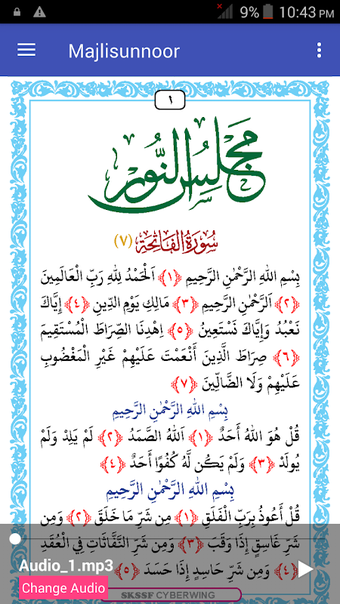 9% 10:43 PM
Majlisunnoor
١
مجلس النور
سُورَةُ الفَاتِحَة (٧)
بِسْمِ اللهِ الرَّحْمٰنِ الرَّحِيْمِ ﴿١﴾ اَلْحَمْدُ لِلهِ رَبِّ الْعَالَمِينَ
﴿٢﴾ اَلرَّحْمٰنِ الرَّحِيْمِ ﴿٣﴾ مَالِكِ يَوْمِ الدِّينِ ﴿٤﴾ إِيَّاكَ
نَعْبُدُ وَإِيَّاكَ نَسْتَعِينُ ﴿٥﴾ اِهْدِنَا الصِّرَاطَ الْمُسْتَقِيمَ
﴿٦﴾ صِرَاطَ الَّذِينَ أَنْعَمْتَ عَلَيْهِمْ غَيْرِ الْمَغْضُوبِ
عَلَيْهِمْ وَلَا الضَّالِّينَ ﴿٧﴾
بِسْمِ اللهِ الرَّحْمٰنِ الرَّحِيْمِ
قُلْ هُوَ اللهُ أَحَدٌ ﴿١﴾ اَللهُ الصَّمَدُ ﴿٢﴾ لَمْ يَلِدْ وَلَمْ
يُولَدْ ﴿٣﴾ وَلَمْ يَكُن لَّهُ كُفُوًا أَحَدٌ ﴿٤﴾
بِسْمِ اللهِ الرَّحْمٰنِ الرَّحِيْمِ
قُلْ أَعُوذُ بِرَبِّ الْفَلَقِ ﴿١﴾ مِن شَرِّ مَا خَلَقَ ﴿٢﴾ وَمِن
شَرِّ غَاسِقٍ إِذَا وَقَبَ ﴿٣﴾ وَمِن شَرِّ النَّفَّاثَاتِ فِي الْعُقَدِ
﴿٤﴾ وَمِن شَرِّ حَاسِدٍ إِذَا حَسَدَ ﴿٥﴾
Audio_1.mp3
Change Audio
SKSSF CYBERWING